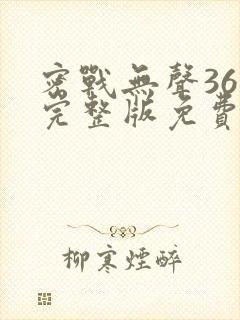 密戰無聲36
完整版免費
柳寒煙醉